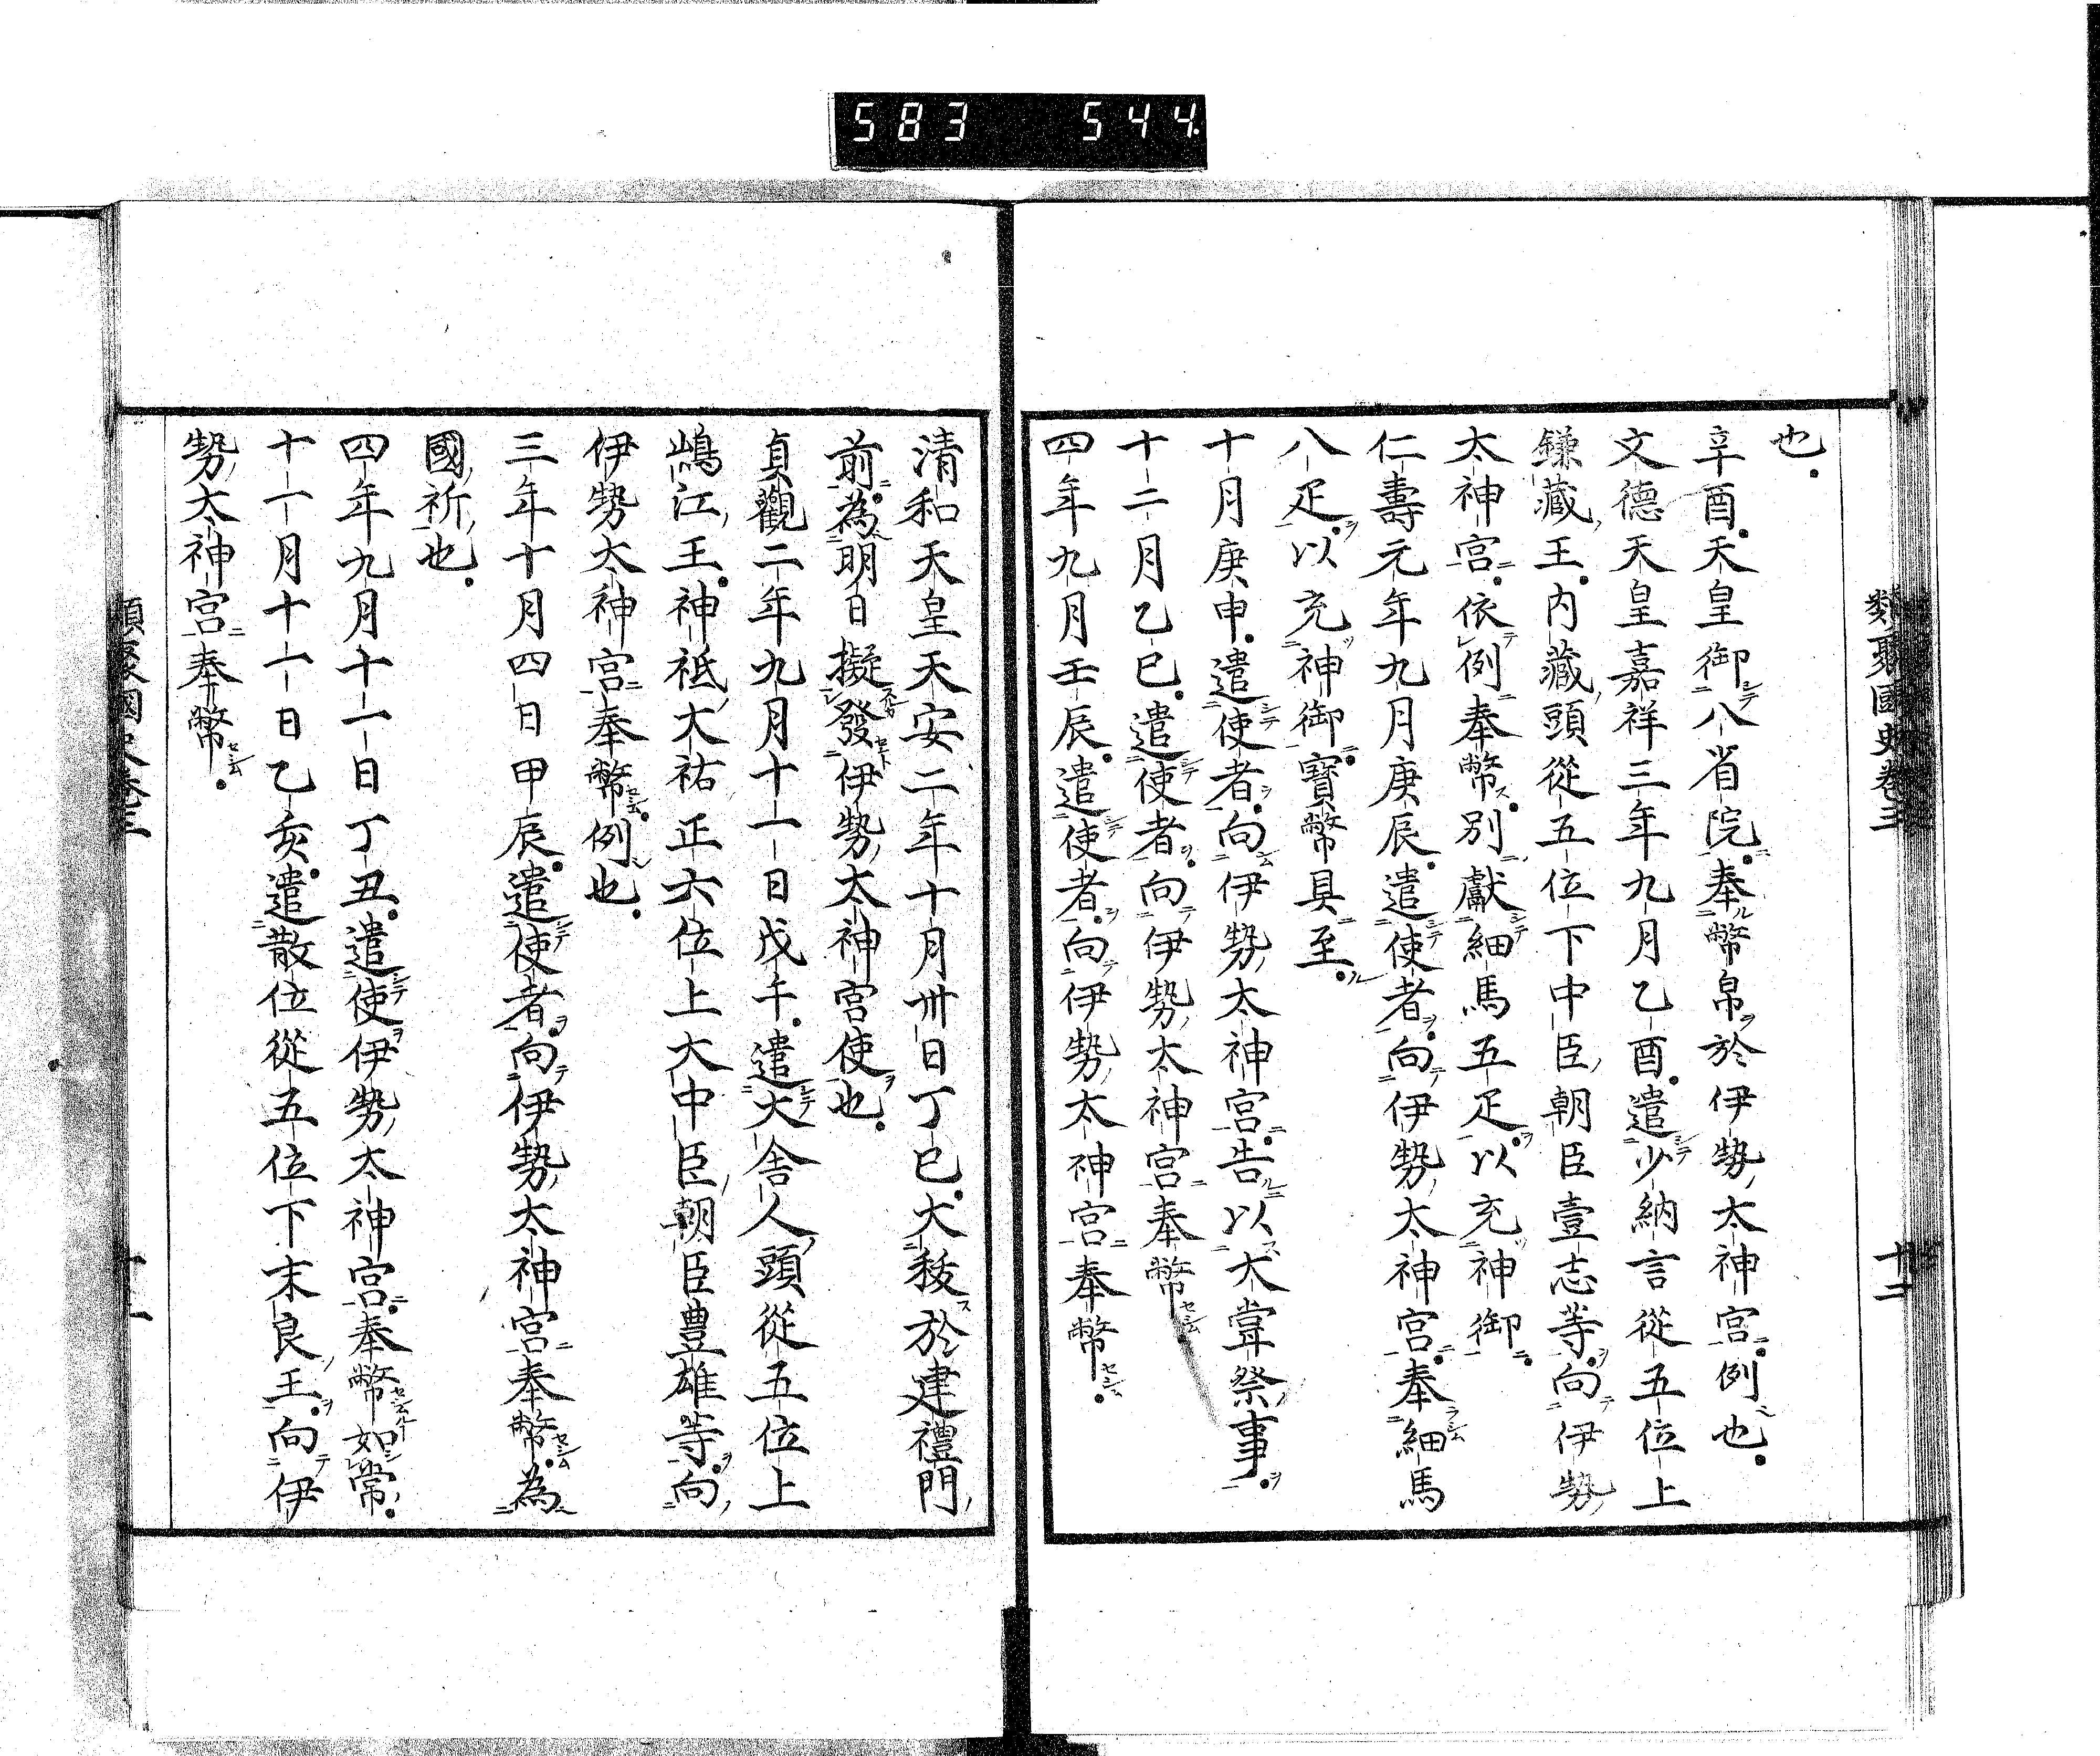 583 544
類聚國史卷三 十二
也。
辛酉。天皇御八省院。奉幣帛於伊勢太神宮。例也。
文德天皇嘉祥三年九月乙酉。遣少納言從五位上
鎌藏王。内藏頭從五位下中臣朝臣壹志等。向伊勢
太神宮。依例奉幣。別獻細馬五疋。以充神御。
仁壽元年九月庚辰。遣使者。向伊勢太神宮。奉細馬
八疋。以充神御。寶幣具至。
十月庚申。遣使者。向伊勢太神宮。告以大甞祭事。
十二月乙巳。遣使者。向伊勢太神宮奉幣
四年九月壬辰。遣使者。向伊勢太神宮奉幣。
清和天皇天安二年十月卅日丁巳。大秡於建禮門
前。為明日擬發伊勢太神宮使也。
貞觀二年九月十一日戊午。遣大舎人頭從五位上
嶋江王。神祇大祐正六位上大中臣朝臣豊雄等。向
伊勢太神宮奉幣。例也。
三年十月四日甲辰。遣使者。向伊勢太神宮奉幣。為
國祈也。
四年九月十一日丁丑。遣使伊勢太神宮。奉幣如常。
十一月十一日乙亥。遣散位從五位下末良王。向伊
勢太神宮奉幣。